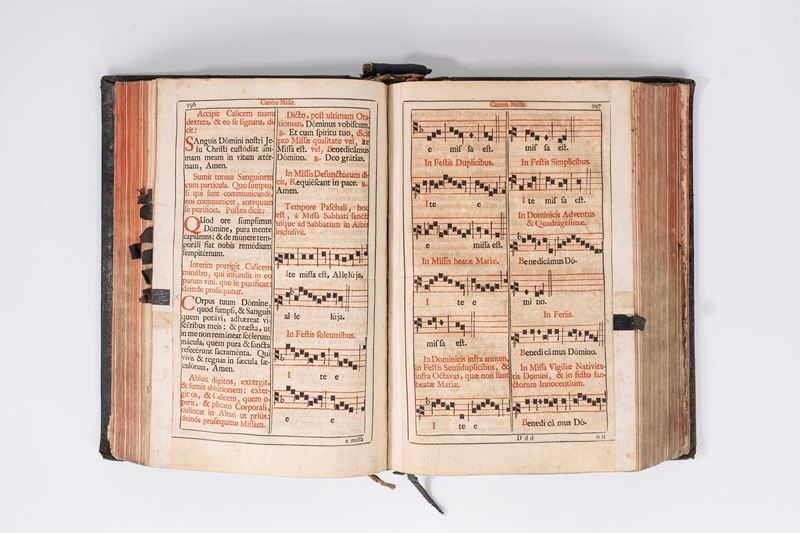 296
Canon Missæ.
Accipit Calicem manu
dextera, & eo se signans, di-
cit:
SAnguis Dómini nostri Je-
su Christi custódiat áni-
mam meam in vitam ætér-
nam, Amen.
Sumit totum Sanguinem
cum particula. Quo sumpto
si qui sunt communicandi,
eos communicet, antequam
se purificet. Postea dicit:
QUod ore súmpsimus
Dómine, pura mente
capiámus: & de múnere tem-
poráli fiat nobis remédium
sempitérnum.
Interim porrigit Calicem
ministro, qui infundit in eo
parum vini, quo se purificat:
deinde prosequitur.
COrpus tuum Dómine,
quod sumpsi, & Sanguis
quem potávi, adhǽreat vi-
scéribus meis: & præsta, ut
in me non remáneat scélerum
mácula, quem pura & sancta
refecérunt sacraménta. Qui
vivis & regnas in sǽcula sæ-
culórum, Amen.
Abluit digitos, extergit,
& sumit ablutionem: exter-
git os, & Calicem, quem o-
perit, & plicato Corporali,
collocat in Altari ut prius:
deinde prosequitur Missam.
Dicto, post ultimam Ora-
tionem, Dóminus vobíscum.
℟. Et cum spíritu tuo, dicit
pro Missæ qualitate vel, Ite
Missa est. vel, Benedicámus
Dómino. ℟. Deo grátias.
In Missis Defunctorum di-
cit, Requiéscant in pace. ℟.
Amen.
Tempore Paschali, hoc
est, à Missa Sabbati sancti
usque ad Sabbatum in Albis
inclusivè.
Ite missa est, Allelúja,
al le lúja.
In Festis solemnibus.
I te e
e e
e missa
Canon Missæ.
297
e mis sa est.
In Festis Duplicibus.
I te e
e missa est.
In Missis beatæ Mariæ.
I te e
mis sa est.
In Dominicis infra annum,
in Festis Semiduplicibus, &
infra Octavas, quæ non sunt
beatæ Mariæ.
I te e
e mis sa est.
In Festis Simplicibus.
I te mis sa est.
In Dominicis Adventus
& Quadragesimæ.
Benedicámus Dó-
mi no.
In Feriis.
Benedi cá mus Dómino.
In Missa Vigiliæ Nativita-
tis Domini, & in festo san-
ctorum Innocentium.
Benedi cá mus Dó-
Ddd
oo